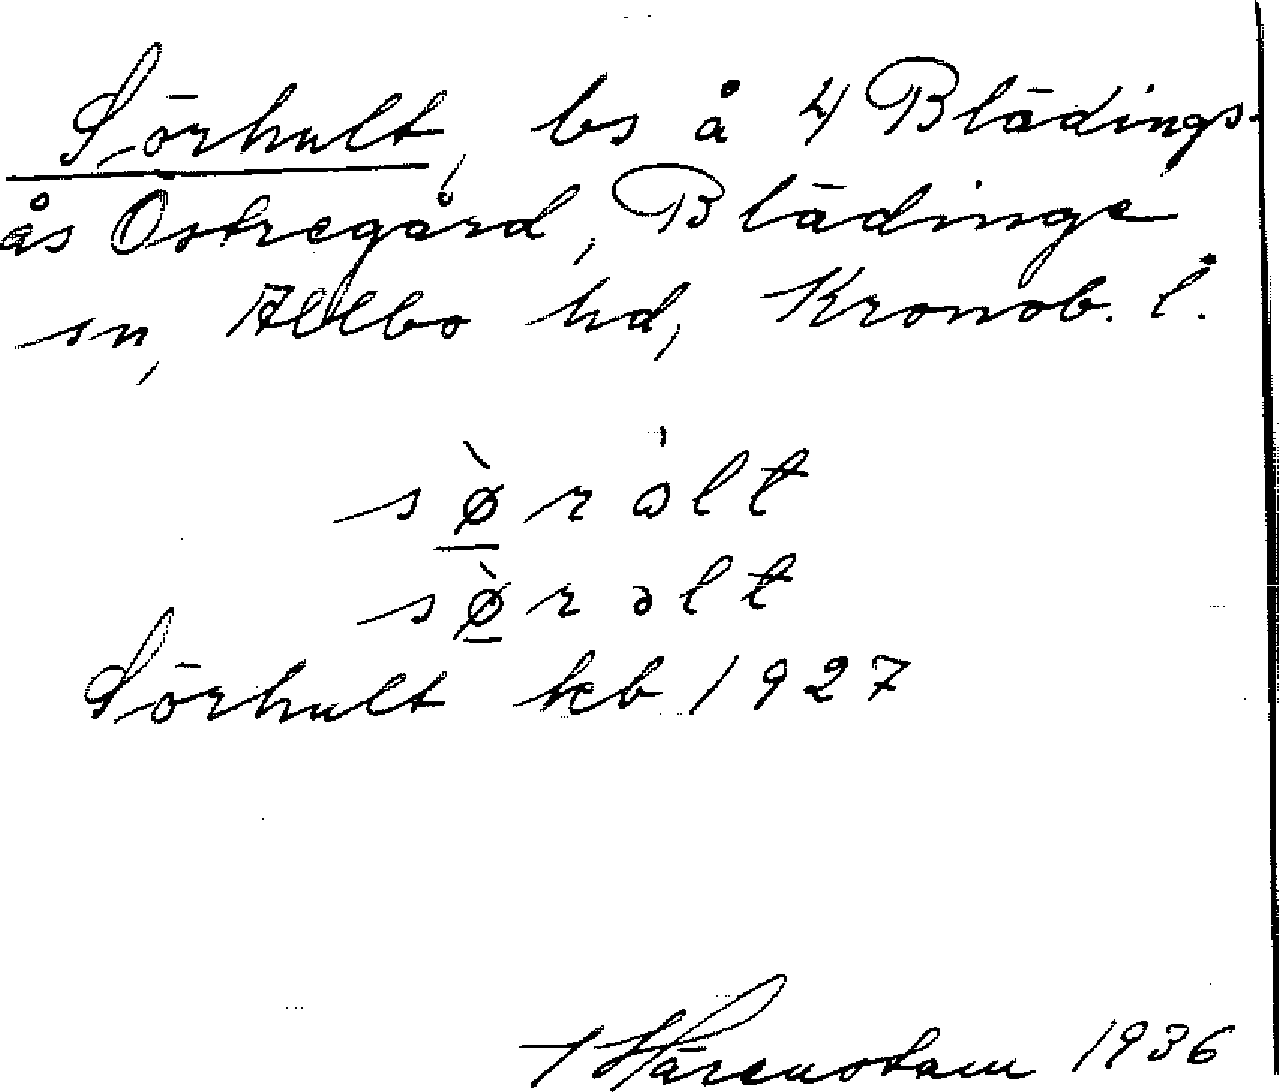 Sörhult, bs å 4 Blädings-
ås Östregård, Blädinge
sn, Allbo hd, Kronob. l.
sø̀rəlt
sø̀rəlt
Sörhult kb 1927
Härenstam 1936